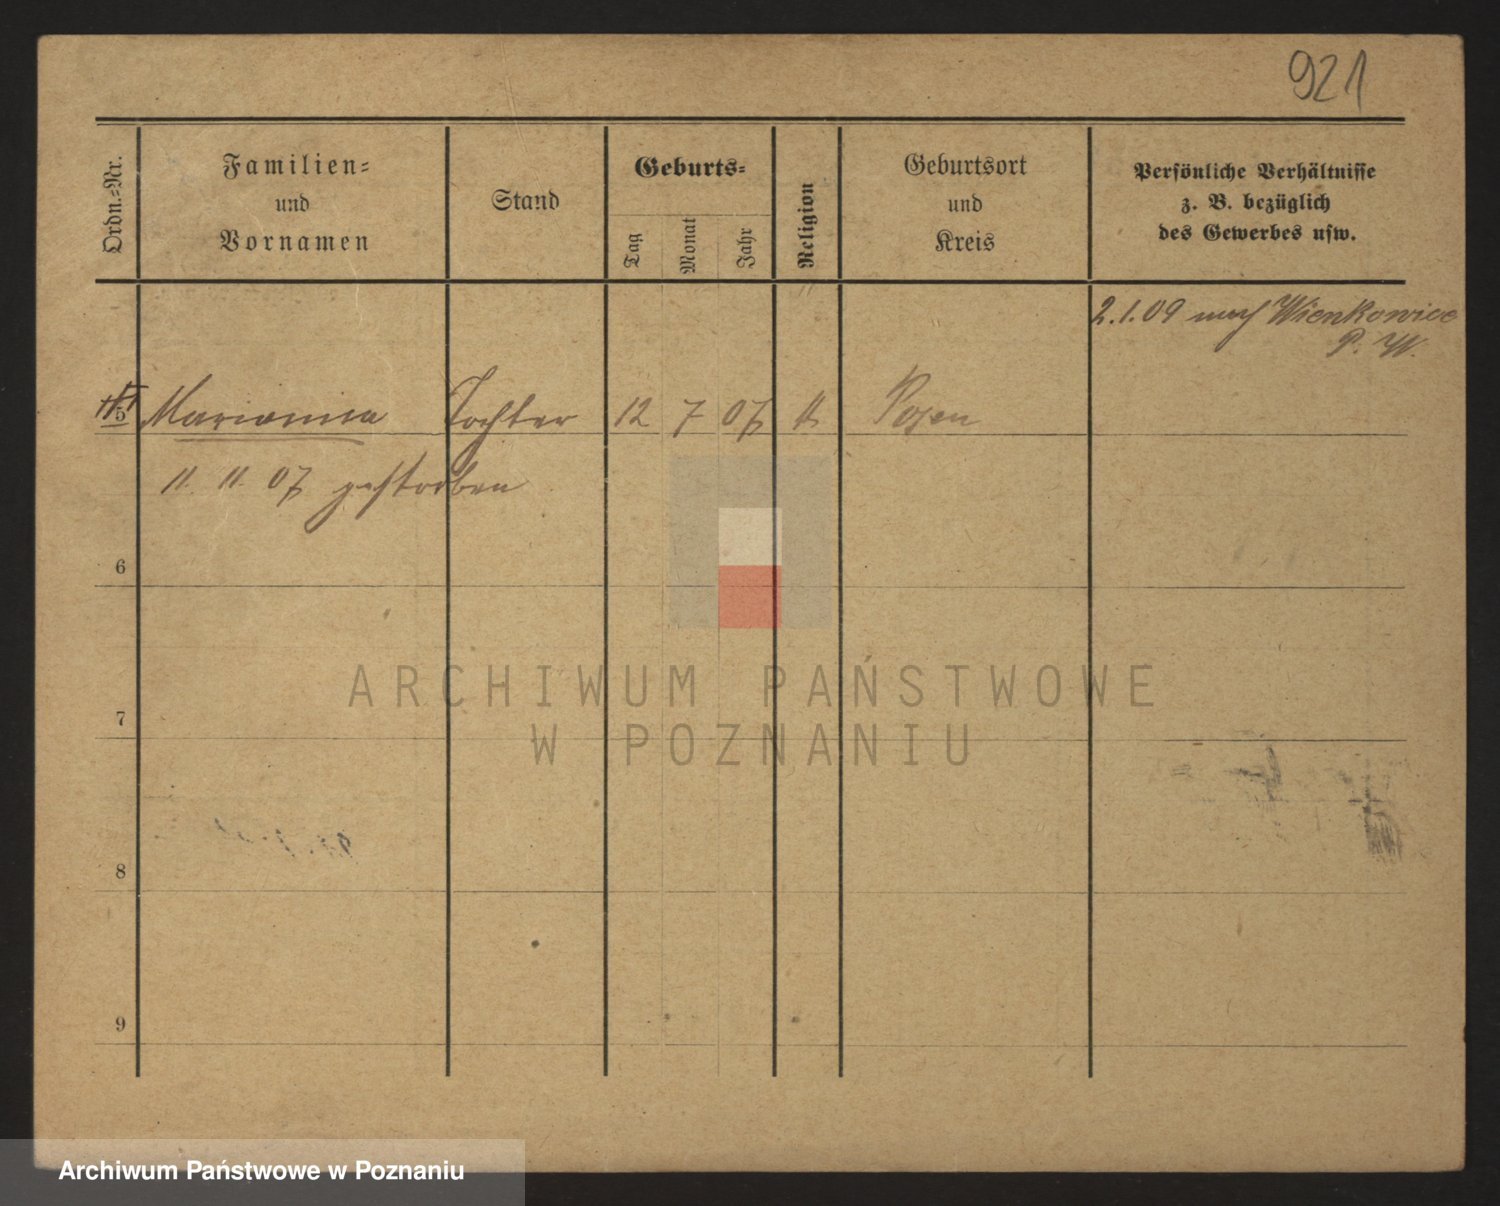 921
Ordn.-Nr.
Familien-
und
Vornamen
Stand
Geburts-
Tag
Monat
Jahr
Religion
Geburtsort
und
Kreis
Persönliche Verhältnisse
z. B. bezüglich
des Gewerbes usw.
2.1.09 nach Wienkowice
P. W.
5 Marianna Tochter 12 7 07 k Posen
11. 11. 07 gestorben
6
7
8
9
ARCHIWUM PAŃSTWOWE
W POZNANIU
Archiwum Państwowe w Poznaniu